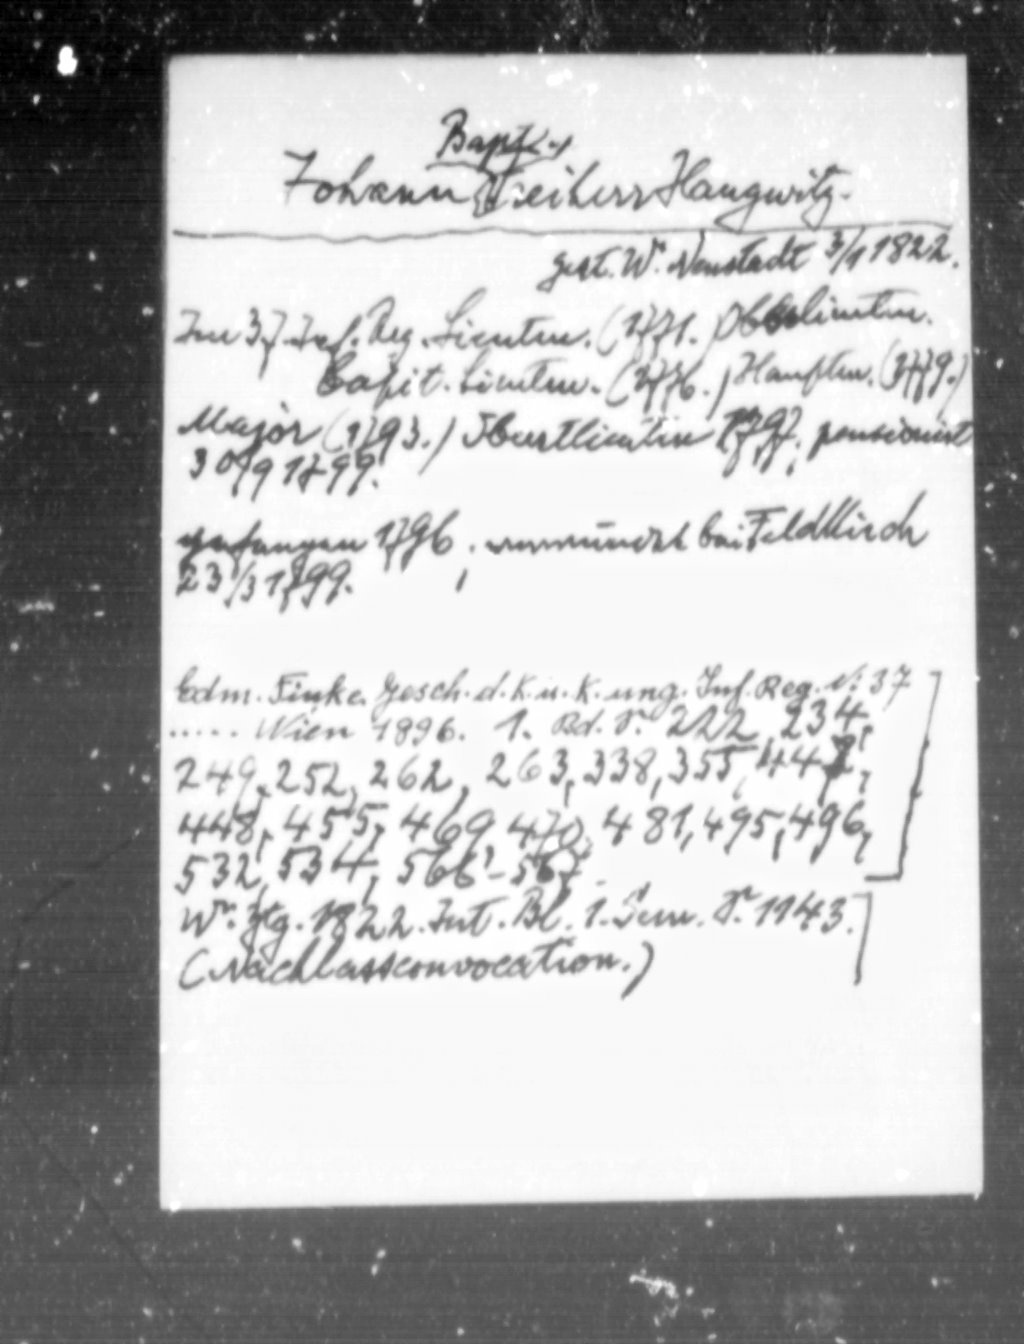 Bapt.
Johann Freiherr Haugwitz.
gest. Wr. Neustadt 3/1 1822.
Im 37. Inf. Reg. Lieutn. (1771.) Oberlieutn.
Capit. Lieutn. (1776.) Hauptm. (1779.)
Major (1793.) Oberstlieutn 1797, pensionirt
30/9 1799.
gefangen 1796, verwundet bei Feldkirch
23/3 1799.
Edm. Finke. Gesch. d. k. u. k. ung. Inf. Reg. N: 37
..... Wien 1896. 1. Bd. S. 222, 234,
249, 252, 262, 263, 338, 355, 447,
448, 455, 469, 470, 481, 495, 496,
532, 534, 566-567
Wr. Ztg. 1822. Int. Bl. 1. Sem. S. 1143.
(Nachlassconvocation.)